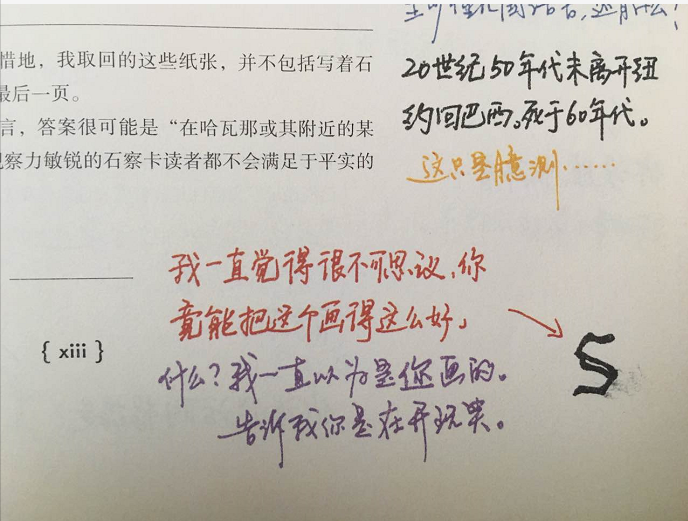 惜地，我取回的这些纸张，并不包括写着石
最后一页。
言，答案很可能是“在哈瓦那或其附近的某
观察力敏锐的石察卡读者都不会满足于平实的
20世纪50年代末离开纽
约回巴西。死于60年代。
这只是臆测……
我一直觉得很不可思议，你
竟能把这个画得这么好。
{ xiii }
什么？我一直以为是你画的。
告诉我你是在开玩笑。
S